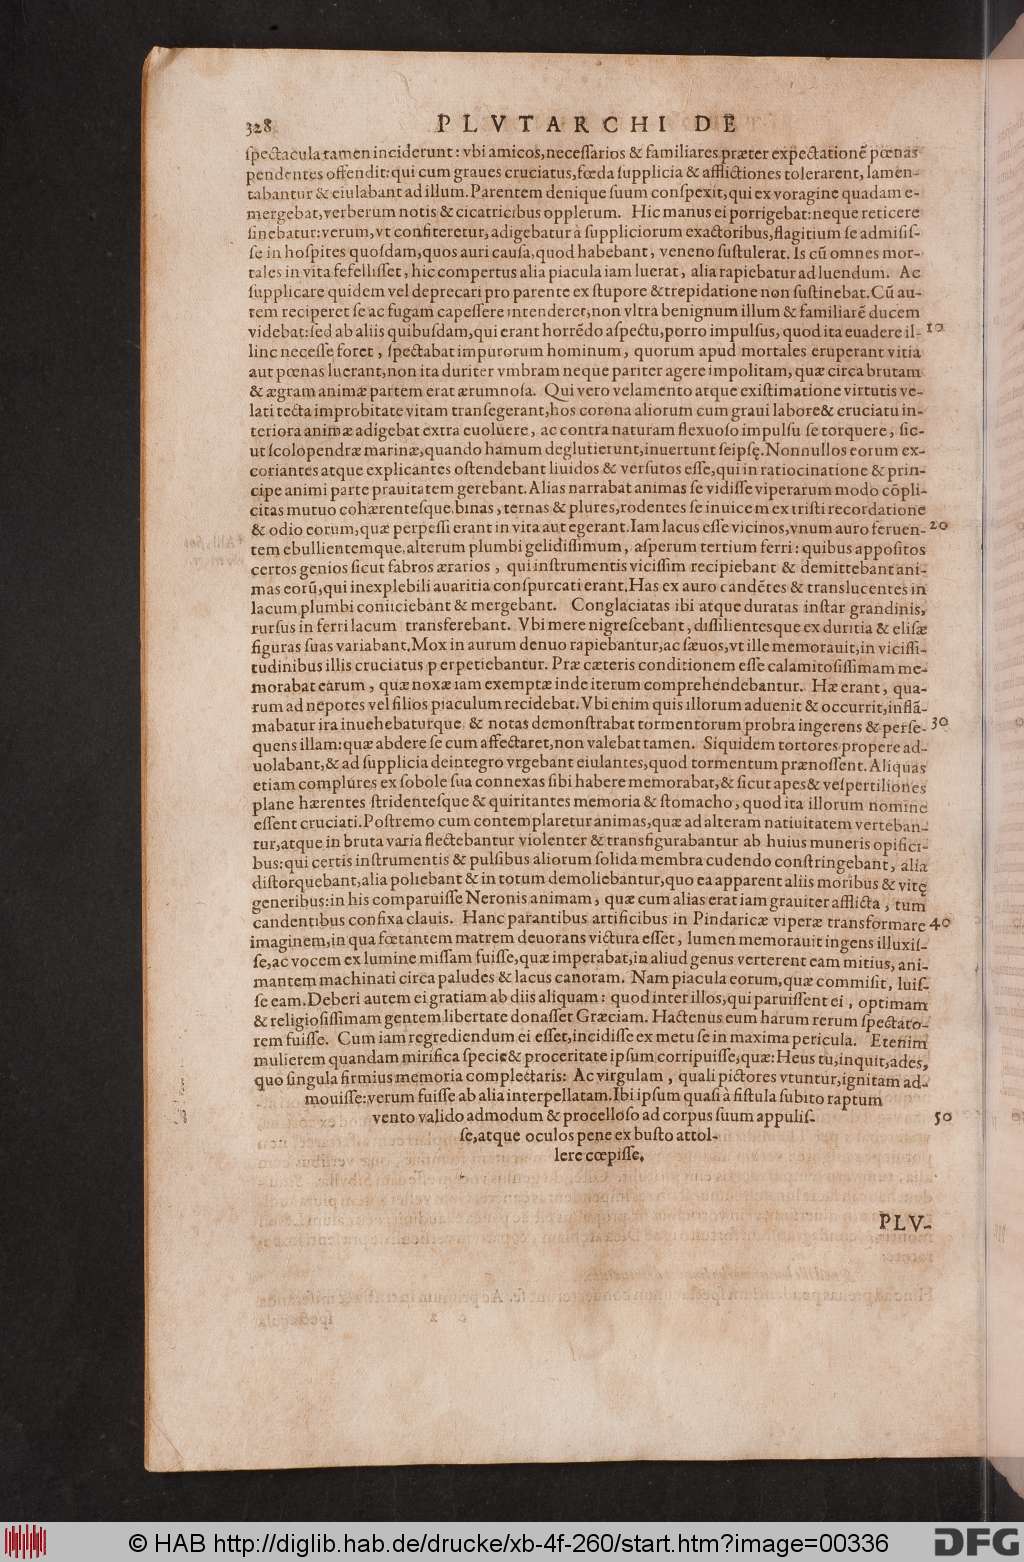 328 PLVTARCHI DE
ſpectacula tamen inciderunt: vbi amicos, neceſſarios & familiares præter expectationẽ pœnas
pendentes offendit: qui cum graues cruciatus, fœda ſupplicia & afflictiones tolerarent, lamen-
tabantur & eiulabant ad illum. Parentem denique ſuum conſpexit, qui ex voragine quadam e-
mergebat, verberum notis & cicatricibus oppletum. Hic manus ei porrigebat: neque reticere
ſinebatur: verum, vt confiteretur, adigebatur à ſuppliciorum exactoribus, flagitium ſe admiſiſ-
ſe in hoſpites quoſdam, quos auri cauſa, quod habebant, veneno ſuſtulerat. Is cũ omnes mor-
tales in vita fefelliſſet, hic compertus alia piacula iam luerat, alia rapiebatur ad luendum. Ac
ſupplicare quidem vel deprecari pro parente ex ſtupore & trepidatione non ſuſtinebat. Cũ au-
tem reciperet ſe ac fugam capeſſere intenderet, non vltra benignum illum & familiarẽ ducem
videbat: ſed ab aliis quibuſdam, qui erant horrẽdo aſpectu, porro impulſus, quod ita euadere il- 10
linc neceſſe foret, ſpectabat impurorum hominum, quorum apud mortales eruperant vitia
aut pœnas luerant, non ita duriter vmbram neque pariter agere impolitam, quæ circa brutam
& ægram animæ partem erat ærumnoſa. Qui vero velamento atque exiſtimatione virtutis ve-
lati tecta improbitate vitam tranſegerant, hos corona aliorum cum graui labore & cruciatu in-
teriora animæ adigebat extra euoluere, ac contra naturam flexuoſo impulſu ſe torquere, ſic-
ut ſcolopendræ marinæ, quando hamum deglutierunt, inuertunt ſeipſę. Nonnullos eorum ex-
coriantes atque explicantes oſtendebant liuidos & verſutos eſſe, qui in ratiocinatione & prin-
cipe animi parte prauitatem gerebant. Alias narrabat animas ſe vidiſſe viperarum modo cõpli-
citas mutuo cohærenteſque, binas, ternas & plures, rodentes ſe inuicem ex triſti recordatione
& odio eorum, quæ perpeſſi erant in vita aut egerant. Iam lacus eſſe vicinos, vnum auro feruen- 20
tem ebullientemque, alterum plumbi gelidiſſimum, aſperum tertium ferri: quibus appoſitos
certos genios ſicut fabros ærarios, qui inſtrumentis viciſſim recipiebant & demittebant ani-
mas eorũ, qui inexplebili auaritia conſpurcati erant. Has ex auro candẽtes & translucentes in
lacum plumbi coniiciebant & mergebant. Conglaciatas ibi atque duratas inſtar grandinis,
rurſus in ferri lacum transferebant. Vbi mere nigreſcebant, diſſilientesque ex duritia & eliſæ
figuras ſuas variabant. Mox in aurum denuo rapiebantur, ac ſæuos, vt ille memorauit, in viciſſi-
tudinibus illis cruciatus perpetiebantur. Præ cæteris conditionem eſſe calamitoſiſſimam me-
morabat earum, quæ noxæ iam exemptæ inde iterum comprehendebantur. Hæ erant, qua-
rum ad nepotes vel filios piaculum recidebat. Vbi enim quis illorum aduenit & occurrit, inflã-
mabatur ira inuehebaturque & notas demonſtrabat tormentorum probra ingerens & perſe- 30
quens illam: quæ abdere ſe cum affectaret, non valebat tamen. Siquidem tortores propere ad-
uolabant, & ad ſupplicia deintegro vrgebant eiulantes, quod tormentum prænoſſent. Aliquas
etiam complures ex ſobole ſua connexas ſibi habere memorabat, & ſicut apes & veſpertiliones
plane hærentes ſtridenteſque & quiritantes memoria & ſtomacho, quod ita illorum nomine
eſſent cruciati. Poſtremo cum contemplaretur animas, quæ ad alteram natiuitatem verteban-
tur, atque in bruta varia flectebantur violenter & transfigurabantur ab huius muneris opifici-
bus: qui certis inſtrumentis & pulſibus aliorum ſolida membra cudendo conſtringebant, alia
diſtorquebant, alia poliebant & in totum demoliebantur, quo ea apparent aliis moribus & vitę
generibus: in his comparuiſſe Neronis animam, quæ cum alias erat iam grauiter afflicta, tum
candentibus confixa clauis. Hanc parantibus artificibus in Pindaricæ viperæ transformare 40
imaginem, in qua fœtantem matrem deuorans victura eſſet, lumen memorauit ingens illuxiſ-
ſe, ac vocem ex lumine miſſam fuiſſe, quæ imperabat, in aliud genus verterent eam mitius, ani-
mantem machinati circa paludes & lacus canoram. Nam piacula eorum, quæ commiſit, luiſ-
ſe eam. Deberi autem ei gratiam ab diis aliquam: quod inter illos, qui paruiſſent ei, optimam
& religioſiſſimam gentem libertate donaſſet Græciam. Hactenus eum harum rerum ſpectato-
rem fuiſſe. Cum iam regrediendum ei eſſet, incidiſſe ex metu ſe in maxima pericula. Etenim
mulierem quandam mirifica ſpecie & proceritate ipſum corripuiſſe, quæ: Heus tu, inquit, ades,
quo ſingula firmius memoria complectaris: Ac virgulam, quali pictores vtuntur, ignitam ad-
mouiſſe: verum fuiſſe ab alia interpellatam. Ibi ipſum quaſi à fiſtula ſubito raptum
vento valido admodum & procelloſo ad corpus ſuum appuliſ- 50
ſe, atque oculos pene ex buſto attol-
lere cœpiſſe.
PLV-
© HAB http://diglib.hab.de/drucke/xb-4f-260/start.htm?image=00336
DFG